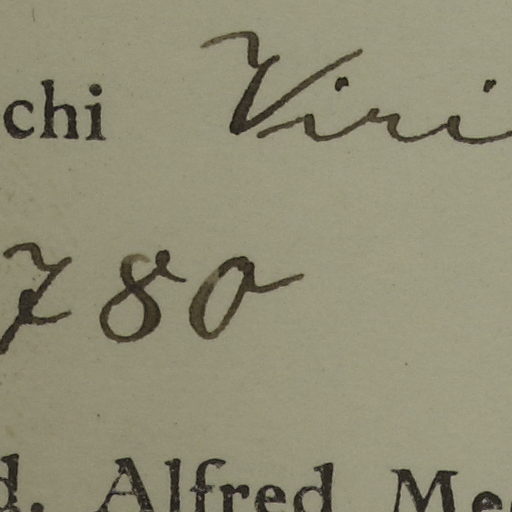 chi Viri
780
d. Alfred Me